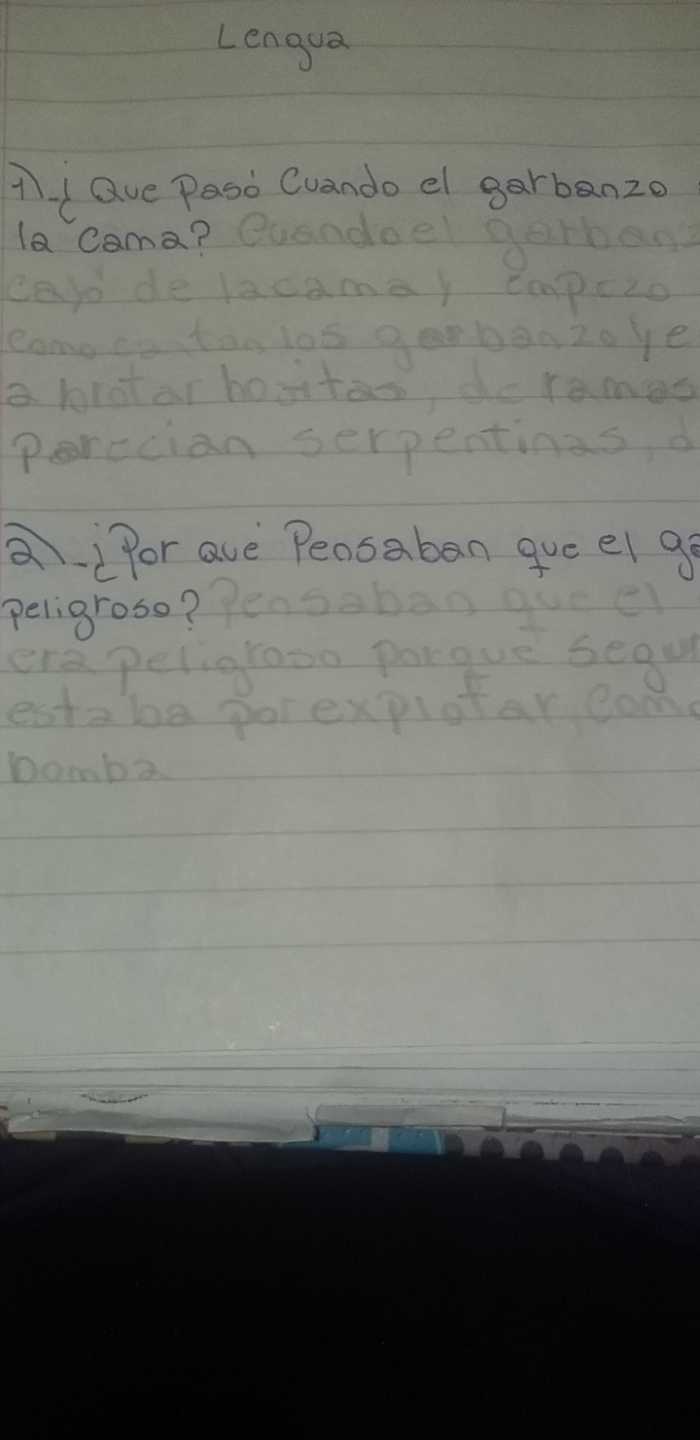 Lengua
1)-¿Que Pasó Cuando el garbanzo
la cama? Cuando el garbanz
cayó de la cama, empezo
como cantan los garbanzo y e
a brotar hojitas, de ramas
Parecian serpentinas, d
2)-¿Por qué Pensaban que el ga
peligroso? Pensaban que el
era peligroso porque segur
estaba por explotar, como
bomba